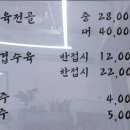 육전골 중 28,00
대 40,00
겹수육 반접시 12,00
한접시 22,00
주 4,00
주 5,00